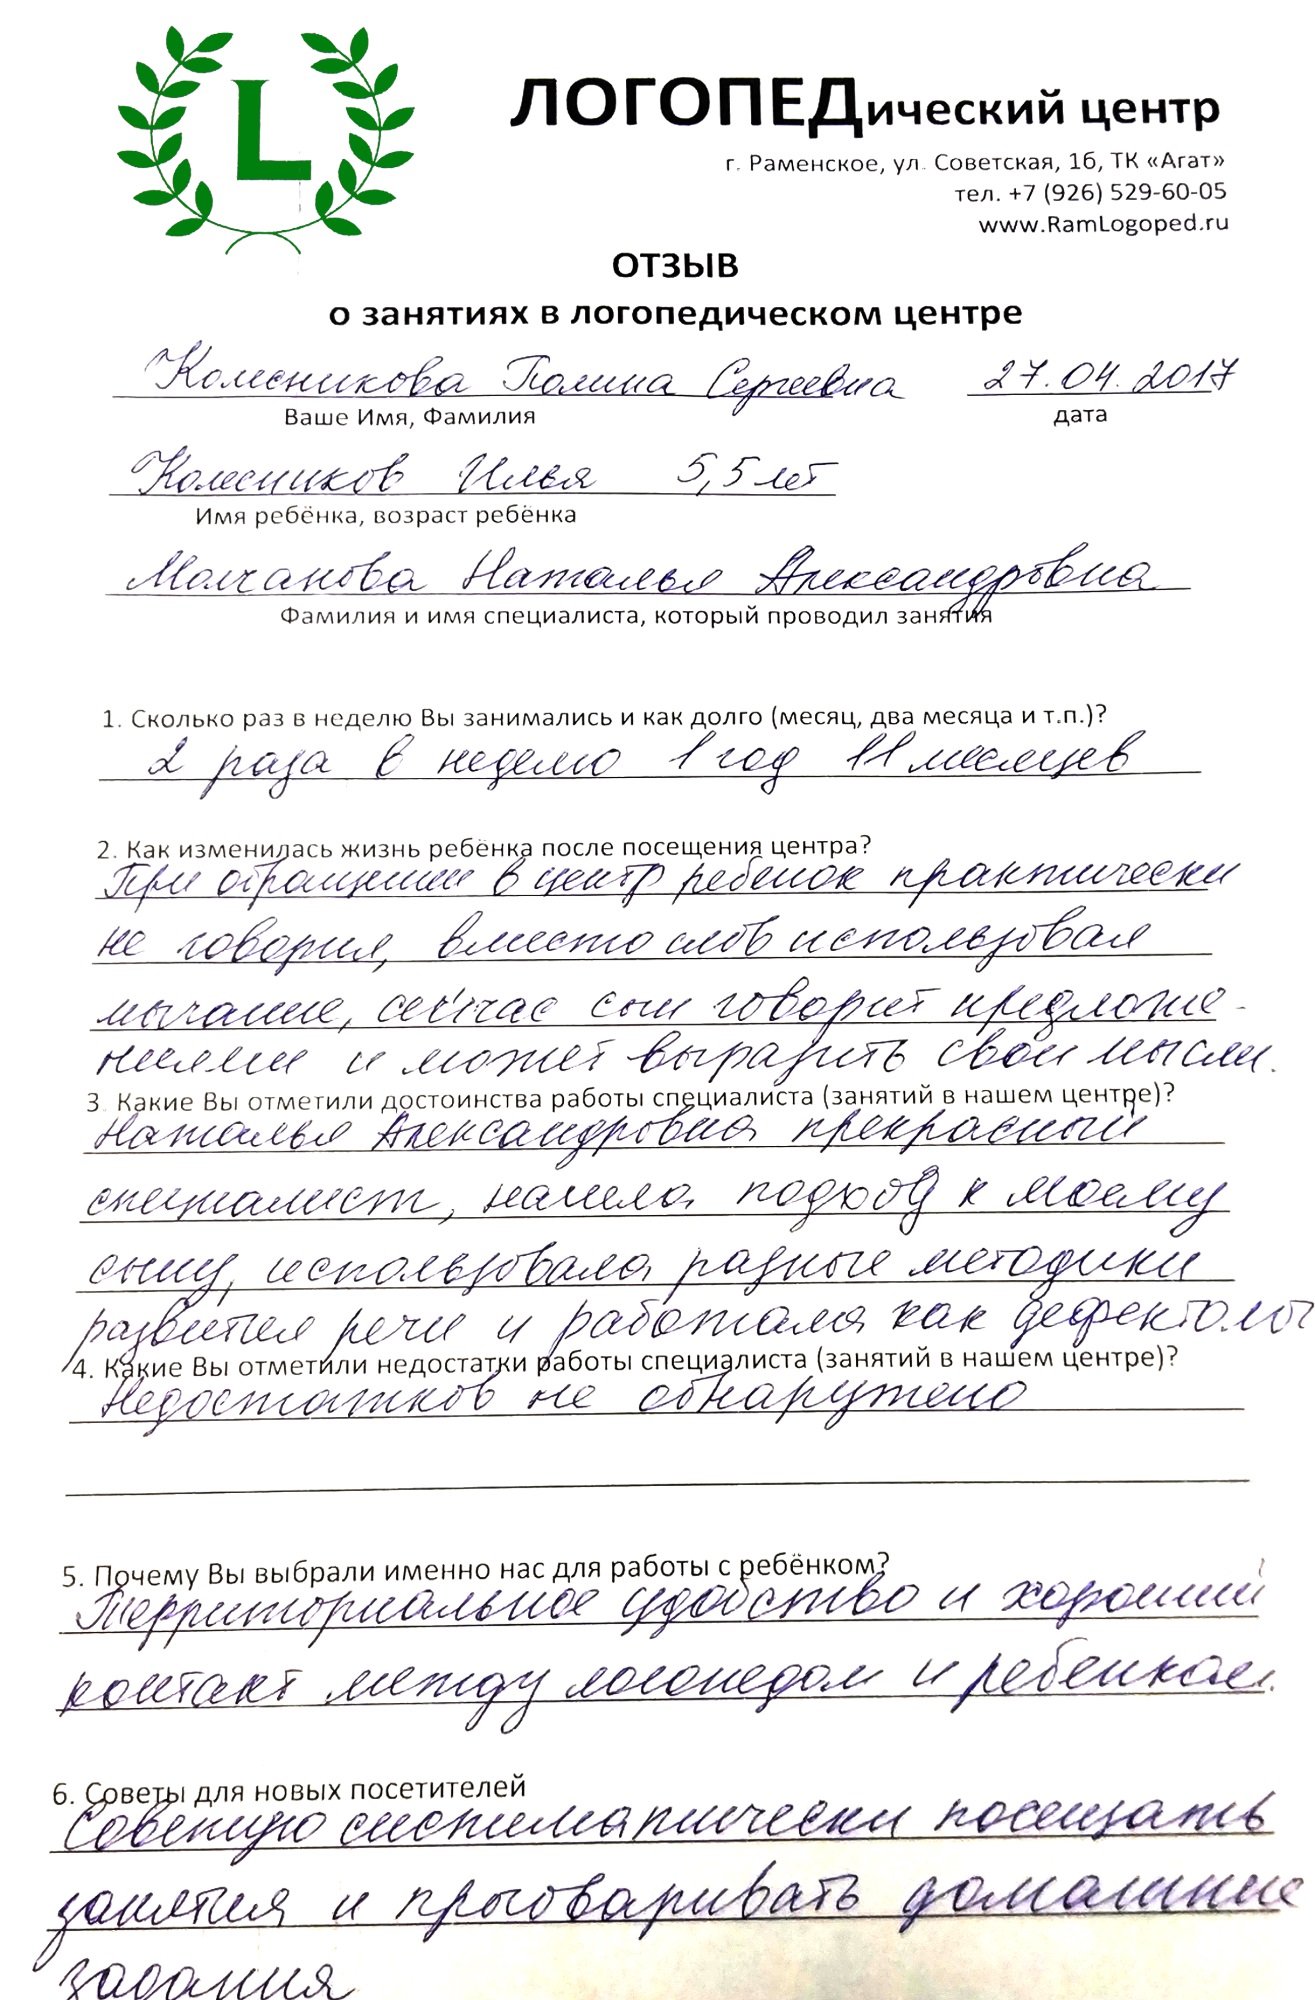 L
ЛОГОПЕДический центр
г. Раменское, ул. Советская, 1б, ТК «Агат»
тел. +7 (926) 529-60-05
www.RamLogoped.ru
ОТЗЫВ
о занятиях в логопедическом центре
Колесникова Полина Сергеевна 27.04.2017
Ваше Имя, Фамилия дата
Колесников Илья 5,5 лет
Имя ребёнка, возраст ребёнка
Молчанова Наталья Александровна
Фамилия и имя специалиста, который проводил занятия
1. Сколько раз в неделю Вы занимались и как долго (месяц, два месяца и т.п.)?
2 раза в неделю 1 год 11 месяцев
2. Как изменилась жизнь ребёнка после посещения центра?
При обращении в центр ребенок практически
не говорил, вместо слов использовал
мычание, сейчас сын говорит предложе-
ниями и может выразить свои мысли.
3. Какие Вы отметили достоинства работы специалиста (занятий в нашем центре)?
Наталья Александровна прекрасный
специалист, нашла подход к моему
сыну, использовала разные методики
развития речи и работала как дефектолог
4. Какие Вы отметили недостатки работы специалиста (занятий в нашем центре)?
Недостатков не обнаружено
5. Почему Вы выбрали именно нас для работы с ребёнком?
Территориальное удобство и хороший
контакт между логопедом и ребенком.
6. Советы для новых посетителей
Советую систиматически посещать
занятия и проговаривать домашние
задания